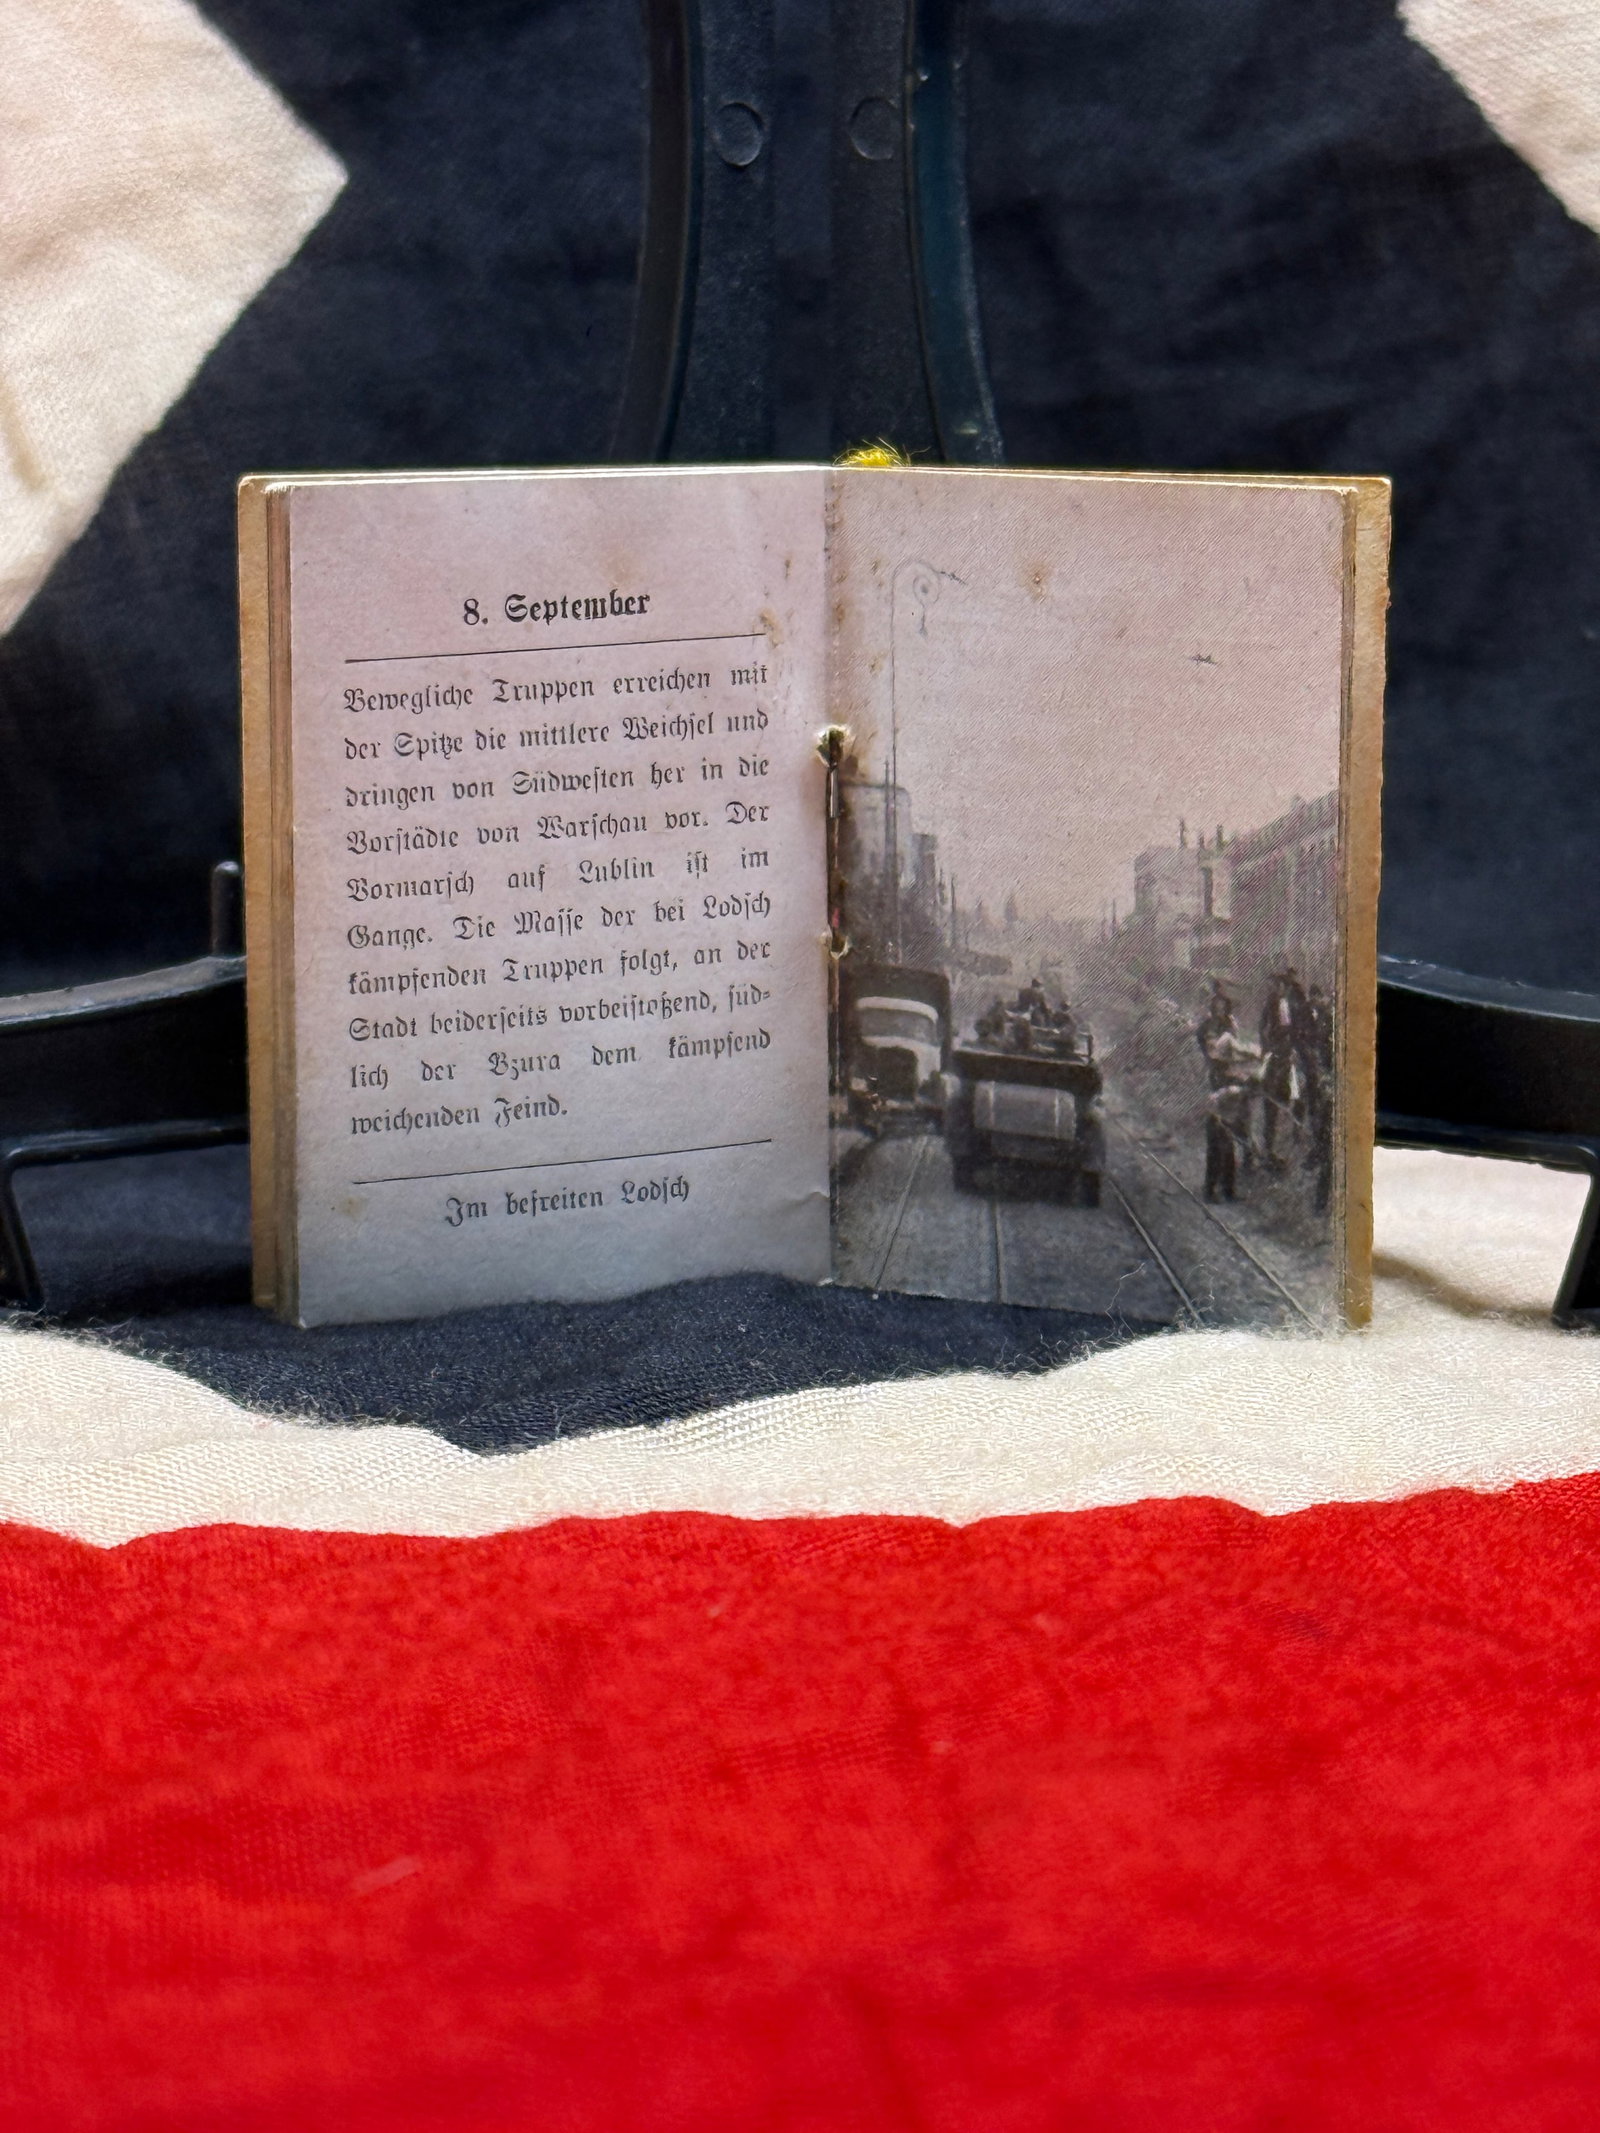 8. September
Bewegliche Truppen erreichen mit
der Spitze die mittlere Weichsel und
dringen von Südwesten her in die
Vorstädte von Warschau vor. Der
Vormarsch auf Lublin ist im
Gange. Die Masse der bei Lodsch
kämpfenden Truppen folgt, an der
Stadt beiderseits vorbeistoßend, süd-
lich der Bzura dem kämpfend
weichenden Feind.
Im befreiten Lodsch